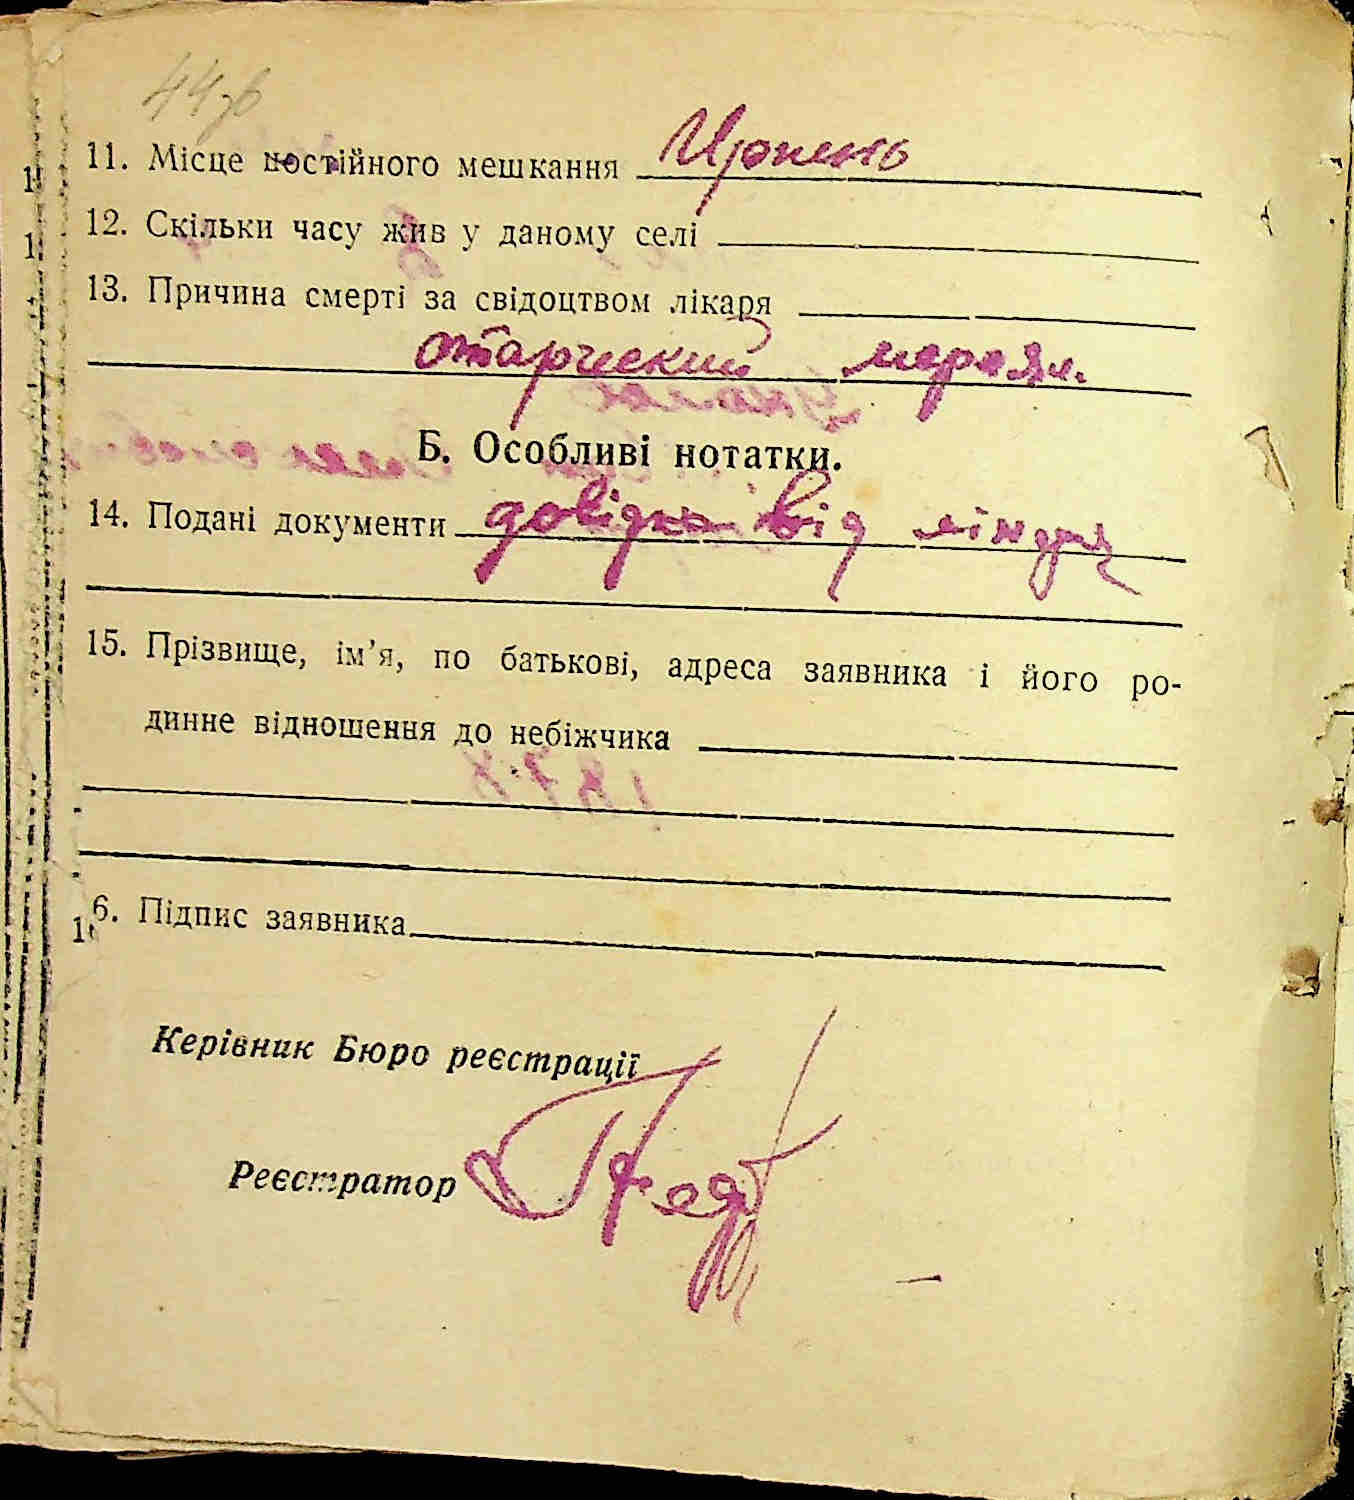 44 зв
11. Місце постійного мешкання Ирпень
12. Скільки часу жив у даному селі
13. Причина смерті за свідоцтвом лікаря
старческий маразм.
Б. Особливі нотатки.
14. Подані документи довідка від
15. Прізвище, ім'я, по батькові, адреса заявника і його ро-
динне відношення до небіжчика
16. Підпис заявника
Керівник Бюро реєстрації
Реєстратор